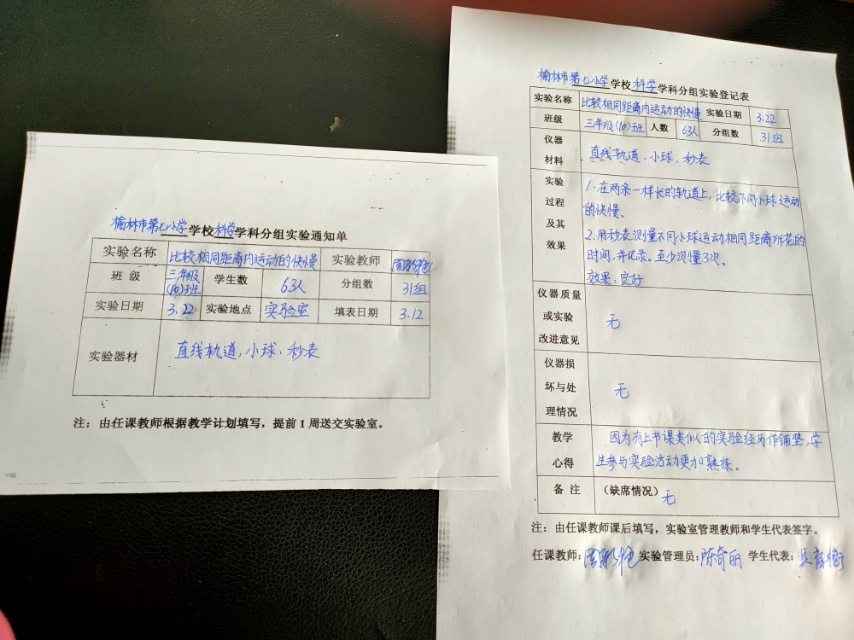 榆林市第七小学学校科学学科分组实验通知单
实验名称 比较相同距离内运动的快慢 实验教师
班级 三年级(10)班 学生数 63人 分组数 31组
实验日期 3.22 实验地点 实验室 填表日期 3.12
实验器材 直线轨道,小球、秒表
注：由任课教师根据教学计划填写，提前1周送交实验室。
榆林市第七小学学校科学学科分组实验登记表
实验名称 比较相同距离内运动的快慢 实验日期 3.22
班级 三年级(10)班 人数 63人 分组数 31组
仪器
材料
直线轨道、小球、秒表
实验
过程
及其
效果
1.在两条一样长的轨道上,比较不同小球运动
的快慢。
2.用秒表测量不同小球运动相同距离所花的
时间,并记录。至少测量3次。
效果:良好
仪器质量
或实验
改进意见
无
仪器损
坏与处
理情况
无
教学
心得
因为有上节课类似的实验经历作铺垫,学
生参与实验活动更加熟练。
备注 (缺席情况) 无
注：由任课教师课后填写，实验室管理教师和学生代表签字。
任课教师: 实验管理员:陈奇丽 学生代表: